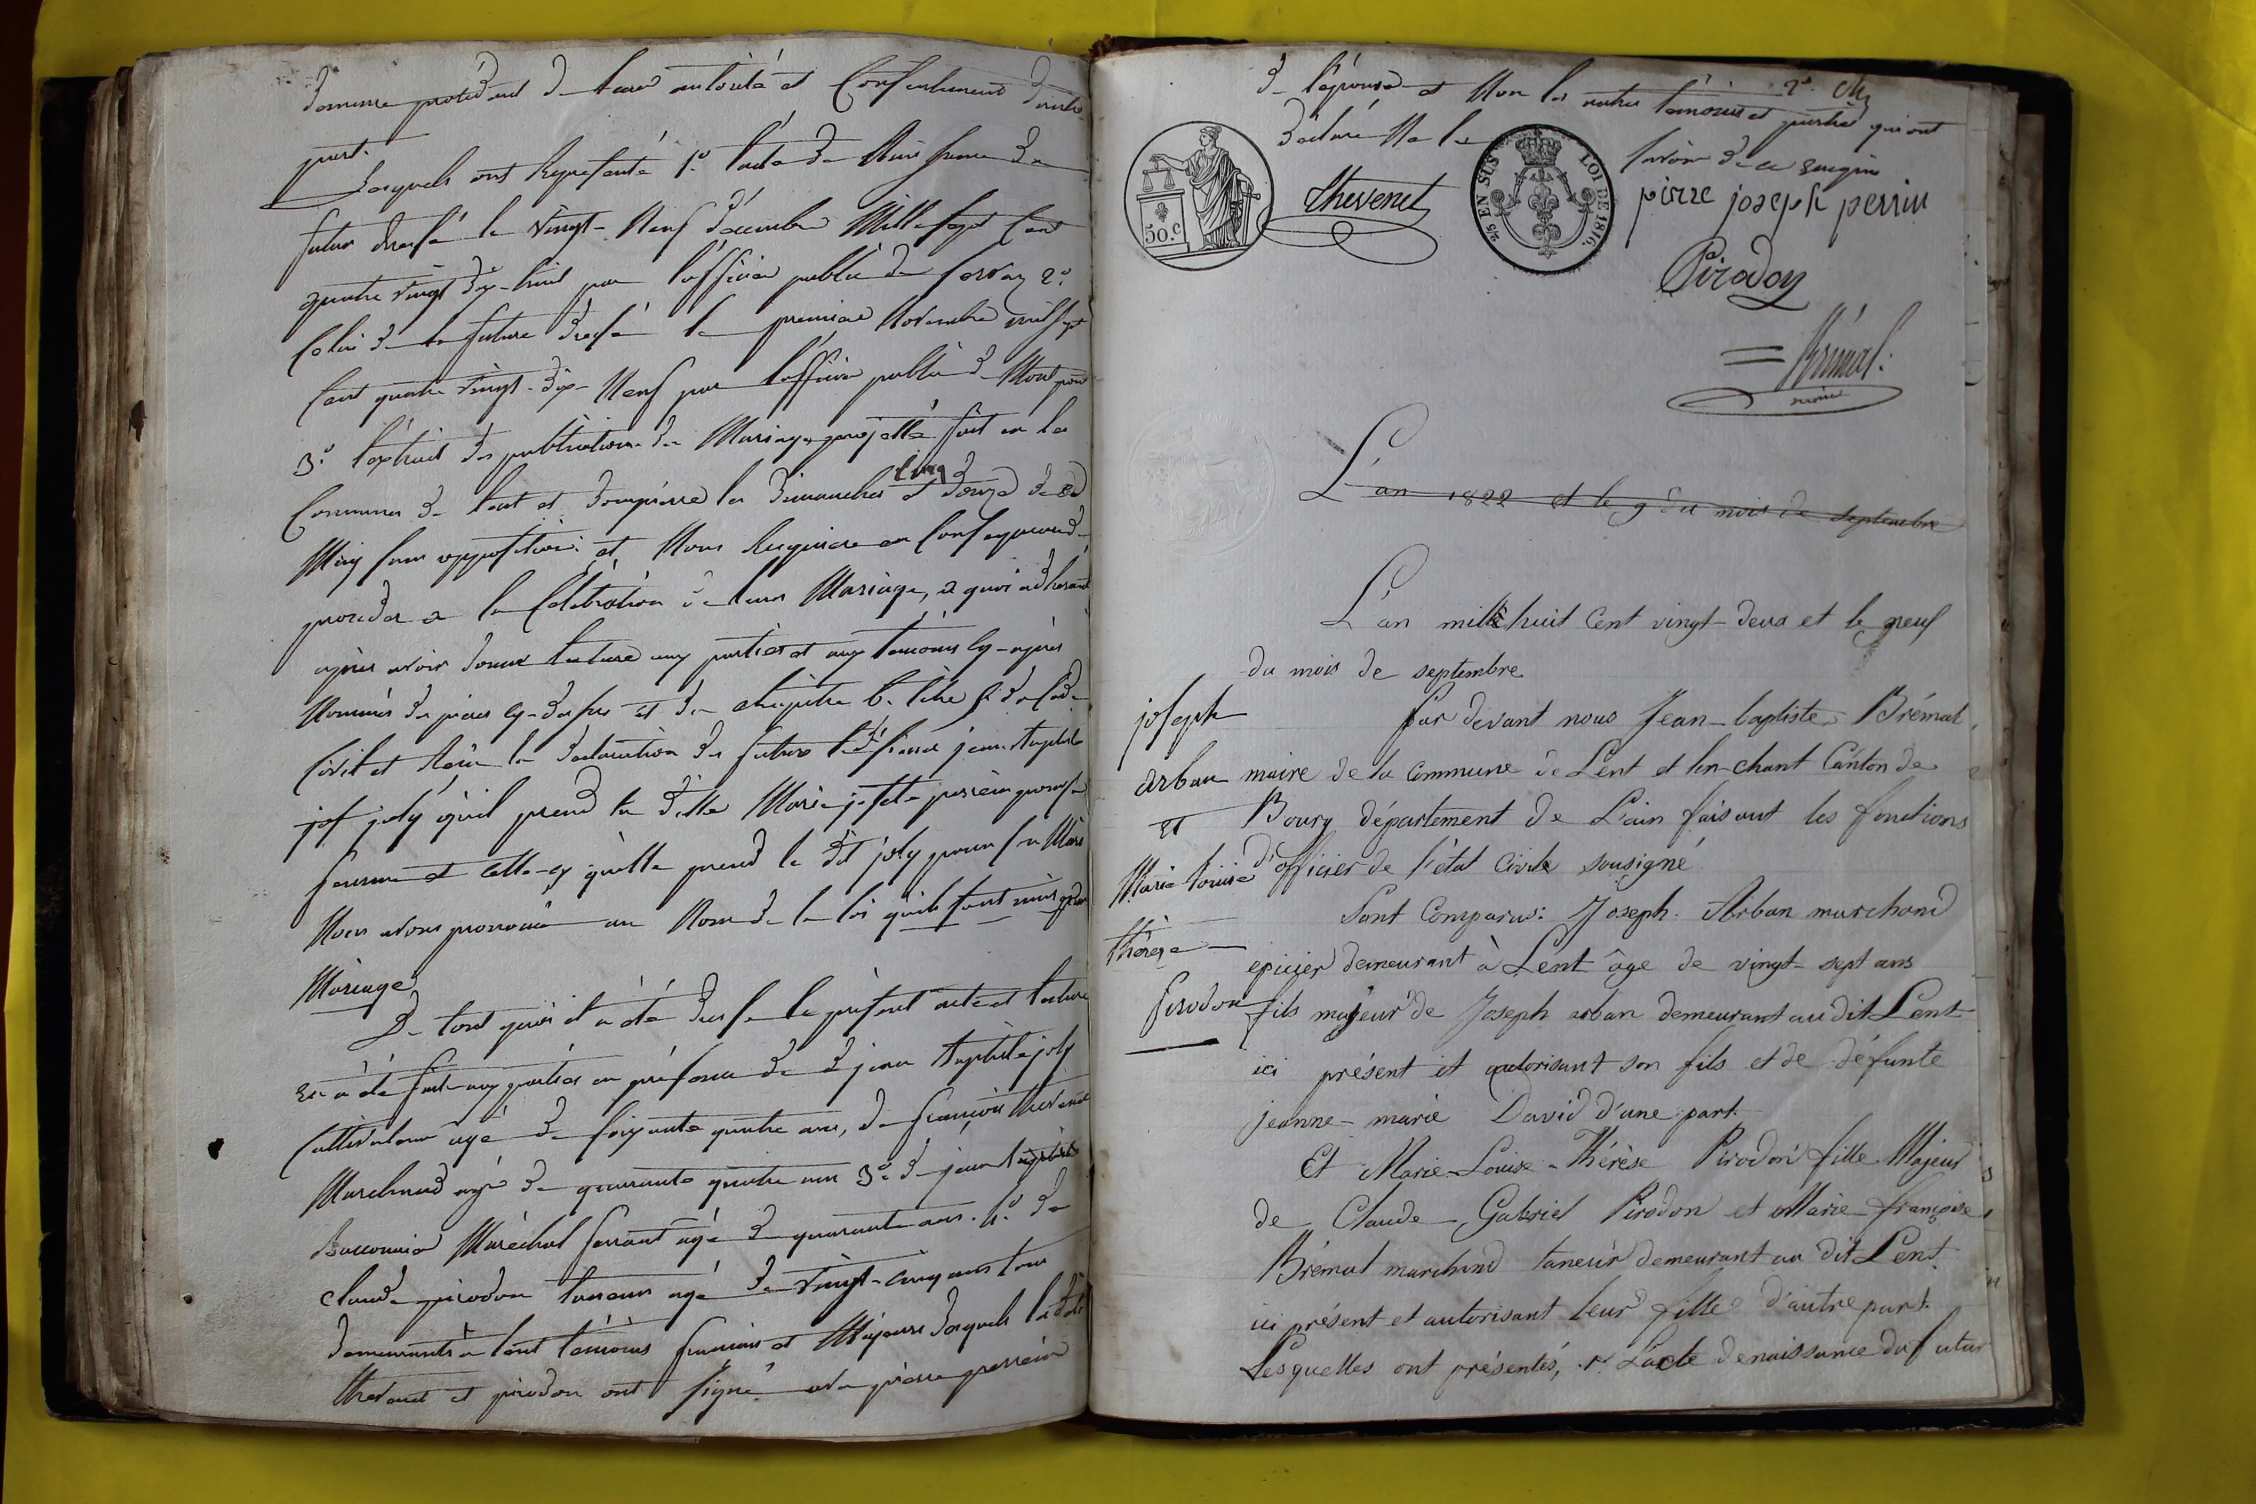 part.
Lesquels ont représenté 1º. l'acte de Naissance du
futur dressé le vingt-Neuf décembre Mille sept Cent
quatre vingt dix-huit par l'officier public de Servaz 2º.
Celui de la future dressé le premier Novembre mil sept
Cent quatre vingt-dix-Neuf par l'officier public de
3º. l'extrait des publications de Mariage projetté fait en les
Communes de Lent et dompierre les dimanches cinq et douze de
May sans opposition. et Nous Requiere en Consequence de
proceder a la Celebration de leur Mariage, a quoi adherant
après avoir donné lecture aux parties et aux temoins cy-après
Nommés des pieces cy-dessus et du chapitre 6. titre 5. du Code
Civil et Reçu la declaration des futurs jean Baptiste
jof joly qu'il prend la ditte Marie josette perrein pour sa
femme et Celle-cy qu'elle prend le dit joly pour son Mari
Nous avons prononcé au Nom de la loi qu'ils sont unis en
Mariage
De tout quoi il a été dressé le présent acte et lecture
en a été faite aux parties en présence de jean Baptiste joly
Cultivateur agé de soixante quatre ans, de françois thevenet
Marchand agé de quarante quatre ans 3º. de jean Baptiste
Bucconnier Maréchal ferrant agé de quarante ans. 4º. de
claude pirodon tanneur agé de vingt-cinq ans tous
demeurants a lent témoins français et Majeurs desquels
thevenet et pirodon ont signé avec pierre perrein
de l'épouse et Non les autres témoins et parties qui ont
déclaré Ne le savoir de ce requis
50.c
2/5 EN SUS LOI DE 1816.
thevenet
pierre joseph perrin
Pirodon
Brémal.
maire
L'an 1822 et le 9 du mois de septembre
L'an mille huit Cent vingt-deux et le neuf
du mois de septembre
joseph
arban
et
Marie louise
thérèse
pirodon
par devant nous Jean-baptiste Brémal
maire de la Commune de Lent et Canton de
Bourg département de L'ain faisant les fonctions
d'officier de l'état Civile sousigné
Sont Comparus: Joseph Arban marchand
epicier demeurant à Lent âge de vingt-sept ans
fils majeur de Joseph arban demeurant au dit Lent
ici présent et autorisant son fils et de défunte
jeanne-marie David d'une part.
Et Marie-Louise-Thérèse Pirodon fille Majeur
de Claude Gabriel Pirodon et Marie-françoise
Brémal marchand taneur demeurant au dit Lent.
ici présent et autorisant leur fille d'autre part.
Lesquelles ont présentés, 1º. L'acte de naissance du futur